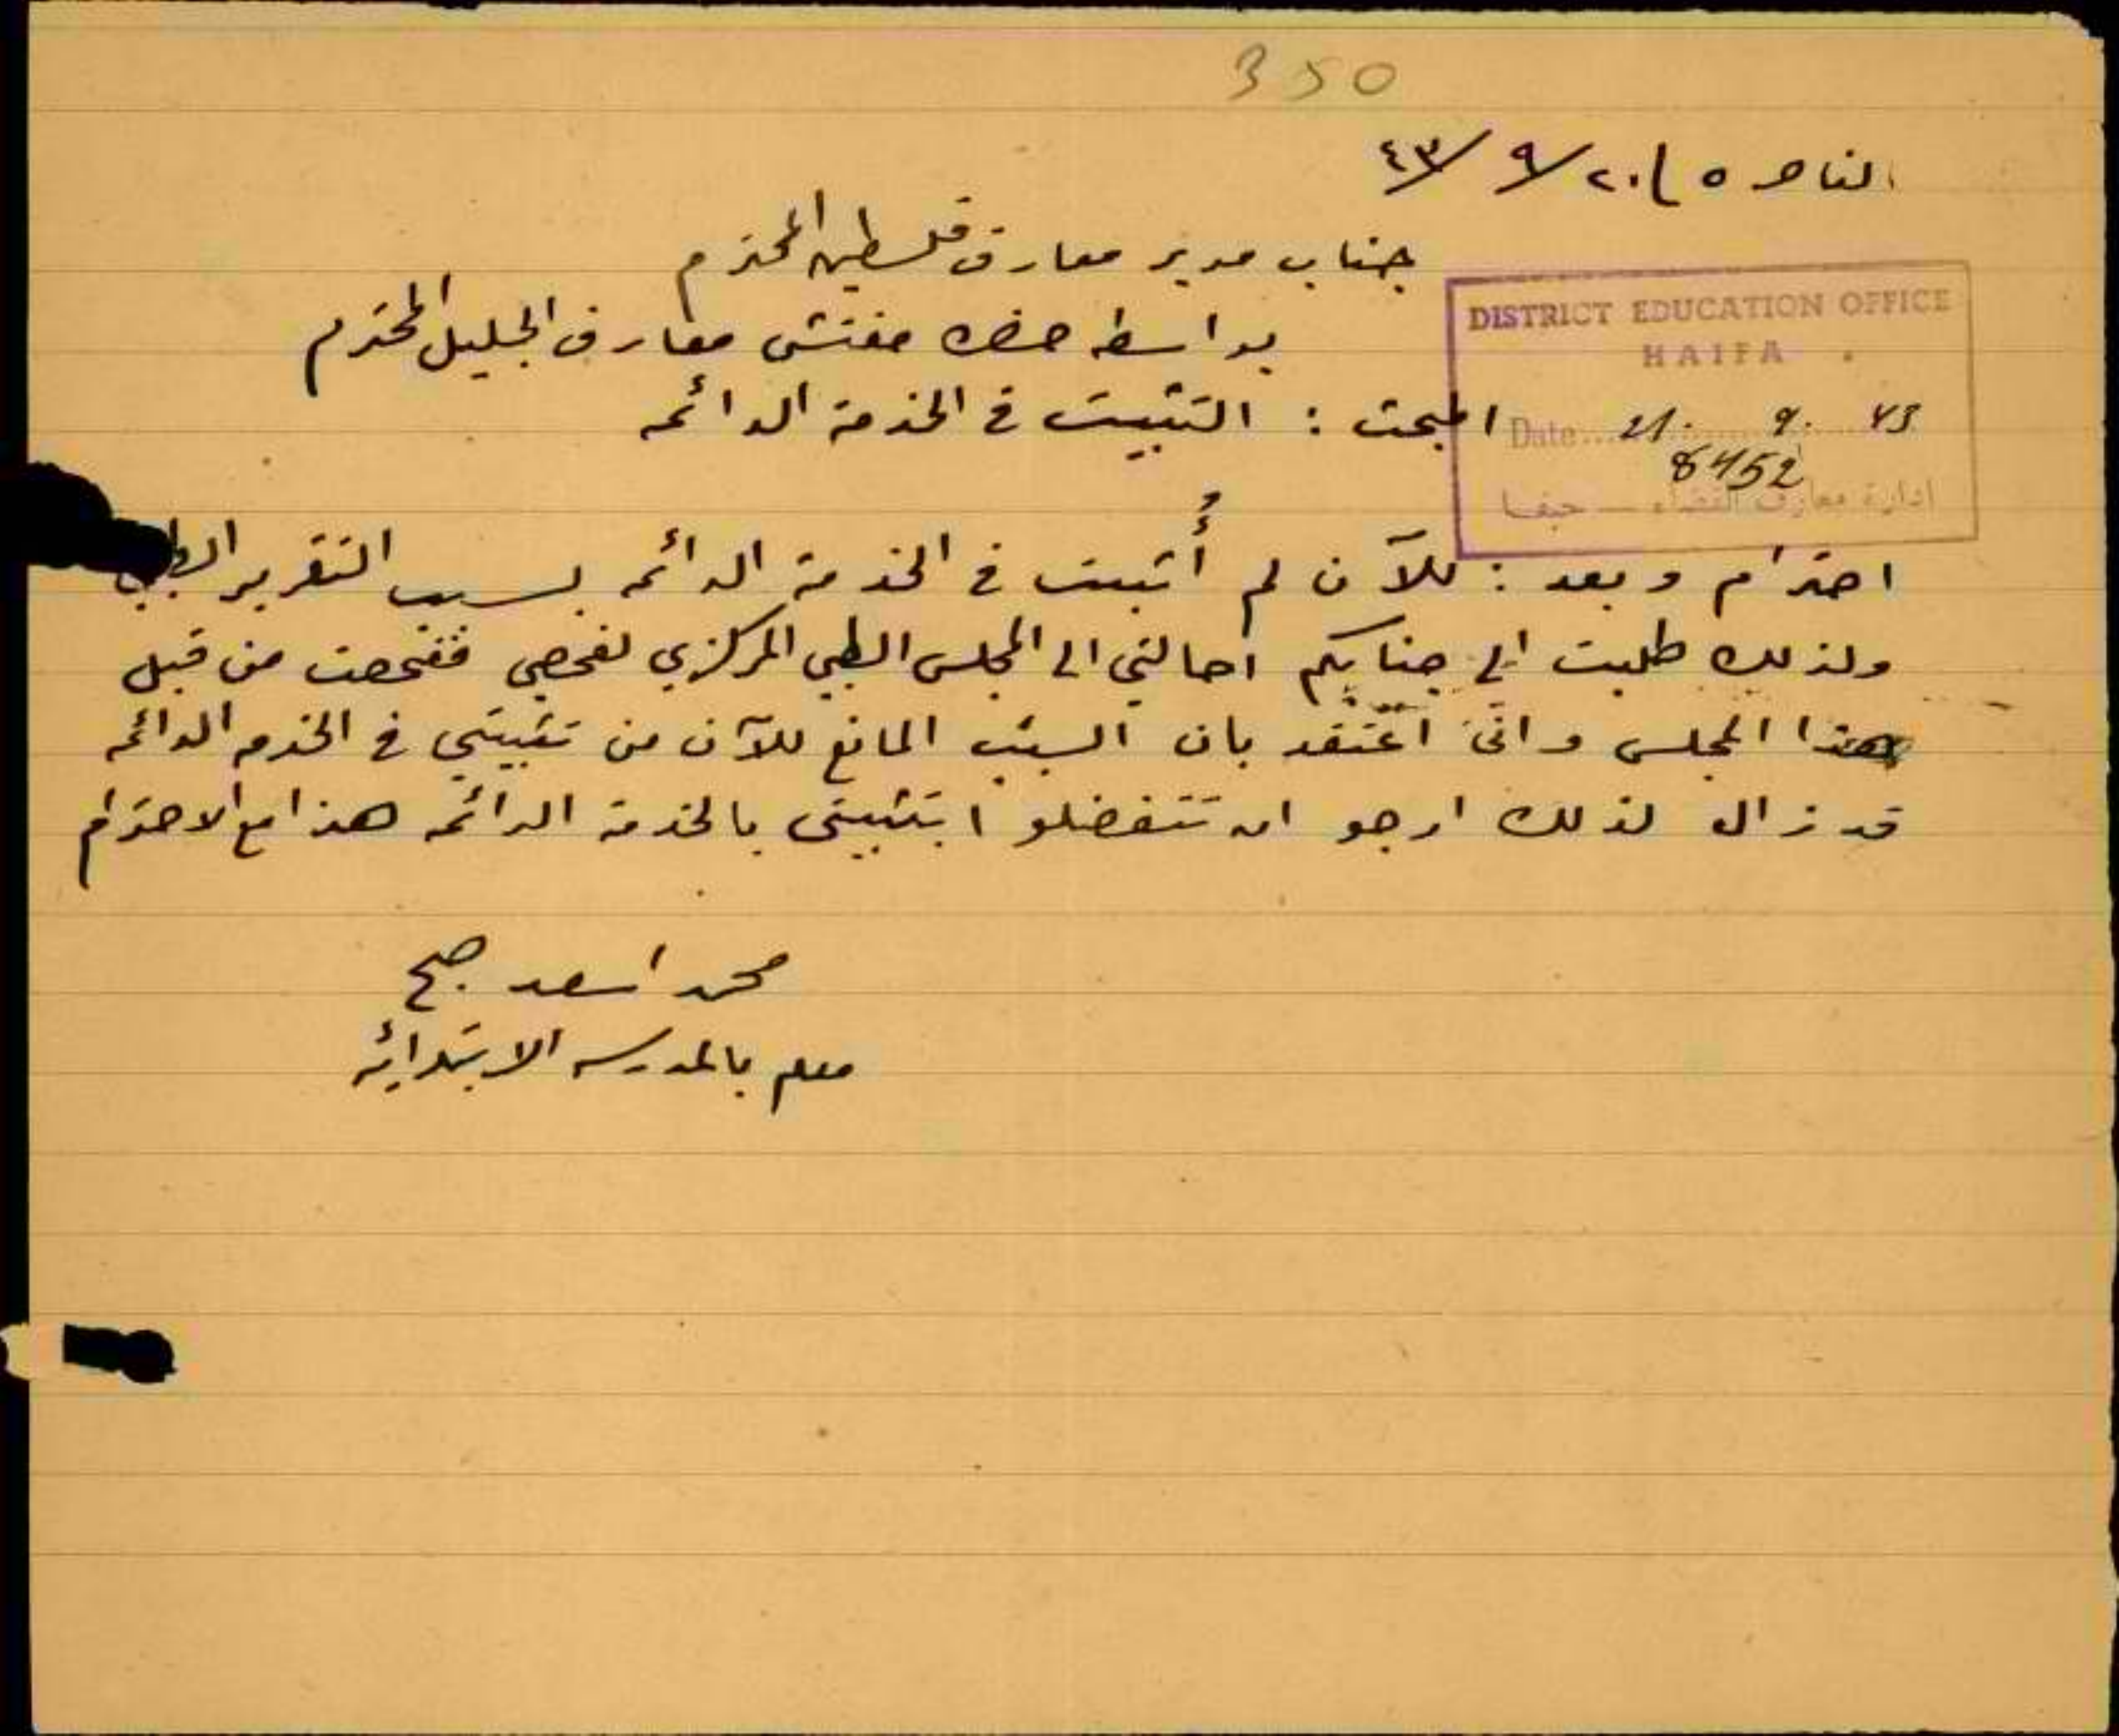 350
الناصره ٢٠/٩/٤٣
جناب مدير معارف فلسطين المحترم
بواسطه حضرة مفتش معارف الجليل المحترم
المبحث : التثبيت في الخدمة الدائمه
DISTRICT EDUCATION OFFICE
HAIFA
Date... 21. 9. 43
8452
ادارة معارف القضاء — حيفا
احترام وبعد : للآن لم أُثبت في الخدمة الدائمه بسبب التقرير الطبي
ولذلك طلبت الى جنابكم احالتي الى المجلس الطبي المركزي لفحصي ففحصت من قبل
هذا المجلس واني اعتقد بان السبب المانع للآن من تثبيتي في الخدمه الدائمه
قد زال لذلك ارجو ان تتفضلوا بتثبيتي بالخدمة الدائمه هذا مع الاحترام
محمد اسعد صبح
معلم بالمدرسه الابتدائيه